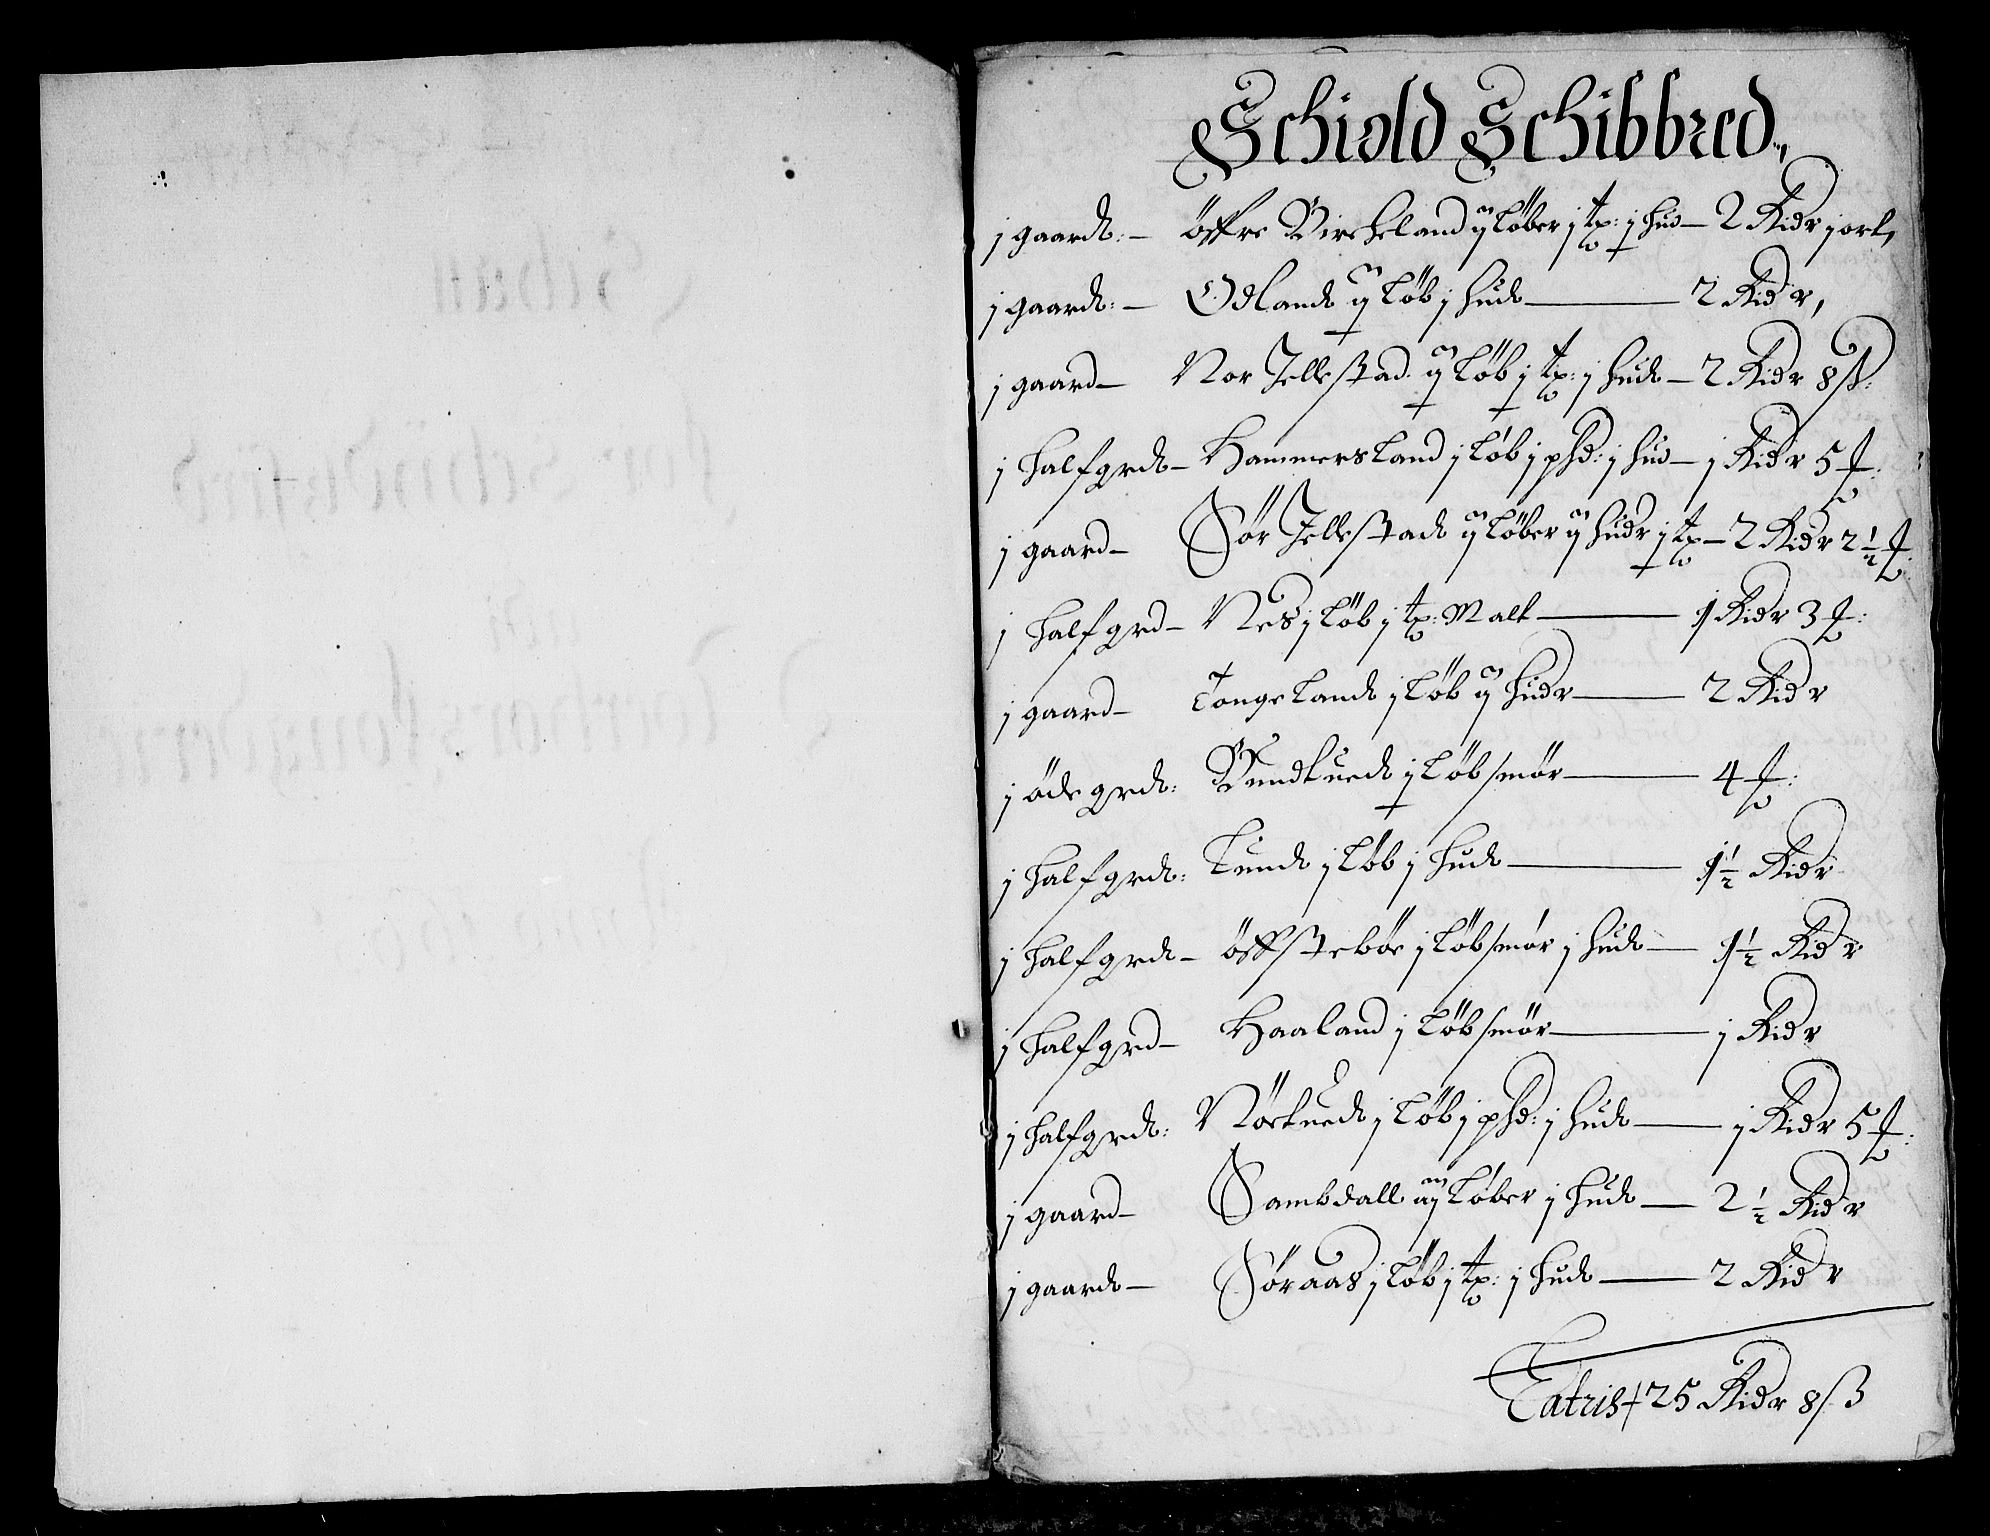 Schiold Schibbred,
j gaard: – öffre Birckeland ij löber j tp: j hud – 2 Ridr j ort,
j gaard: – Odland ij löb j hud — 2 Ridr,
j gaard – Nor Jellestad ij löb j tp: j hud – 2 Ridr 8 ß:
j halfgrd – Hammersland j löb j phd: j hud – j Ridr 5 ₰:
j gaard – Sör Jellestad ij löber ij hudr j tp – 2 Ridr 2½ ₰:
j halfgrd – Nes j löb j tp: Malt — j Ridr 3 ₰:
j gaard – Tongeland j löb ij hudr — 2 Ridr
j öde grd: Bundtued j löb smör — 4 ₰:
j halfgrd: Lund j löb j hud — j½ Ridr
j halfgrd – öffsteböe j löb smör j hud — j½ Ridr
j halfgrd – Haaland j löb smör — j Ridr
j halfgrd: Nöetued j löb j phd: j hud — j Ridr 5 ₰:
j gaard – Sambdall iij löber j hud — 2½ Ridr
j gaard – Söraas j löb j tp: j hud — 2 Ridr
Lateris 25 Ridr 8 ß